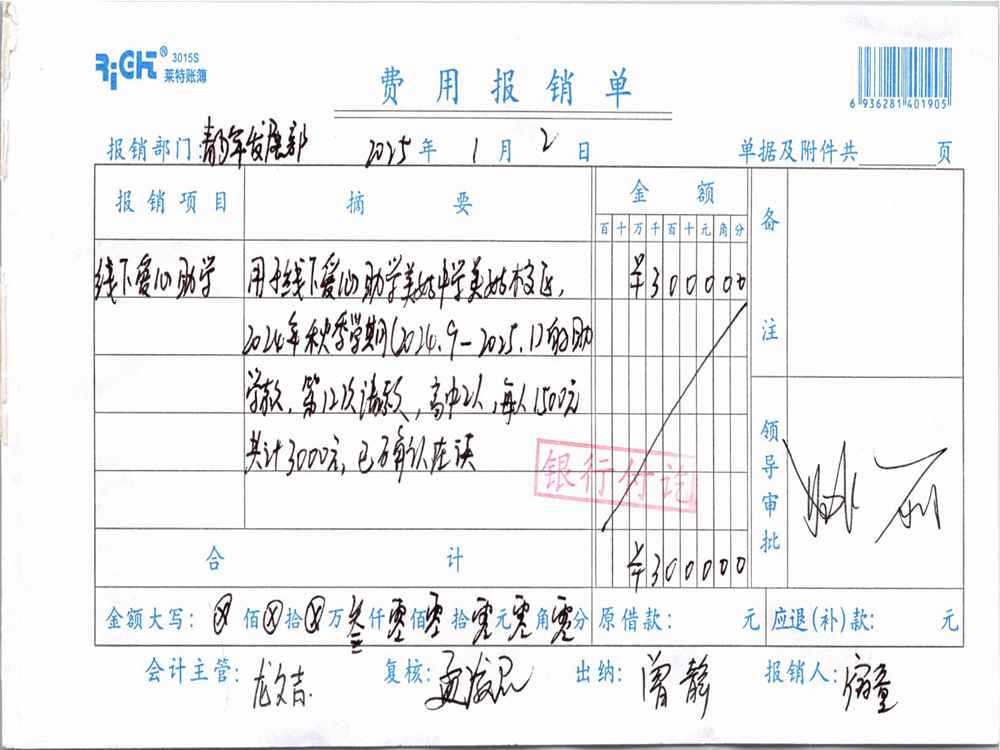 RiGHT® 3015S
莱特账簿
费用报销单
6 936281 401905
报销部门：青年发展部 2025年1月2日 单据及附件共 页
报销项目 摘要 金额 备注
百十万千百十元角分
线下爱心助学 用于线下爱心助学美姑中学美姑校区， ¥300000
2024年秋季学期(2024.9-2025.1)的助
学款，第12次请款，高中2人，每人1500元
共计3000元，已确认在读
银行付讫
领导审批
合计 ¥300000
金额大写：ⓧ佰ⓧ拾ⓧ万叁仟零佰零拾零元零角零分 原借款： 元 应退(补)款： 元
会计主管：龙文吉 复核： 出纳：曾静 报销人：宿童